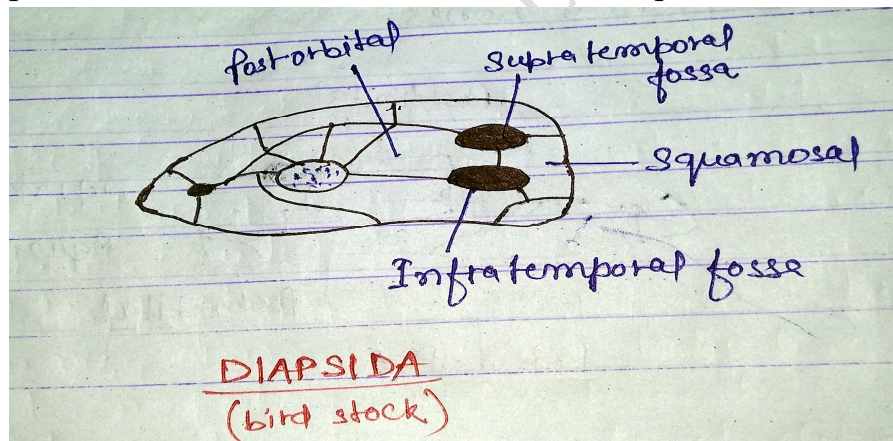 Postorbital
Supra temporal
fossa
Squamosal
Infratemporal fossa
DIAPSIDA
(bird stock)